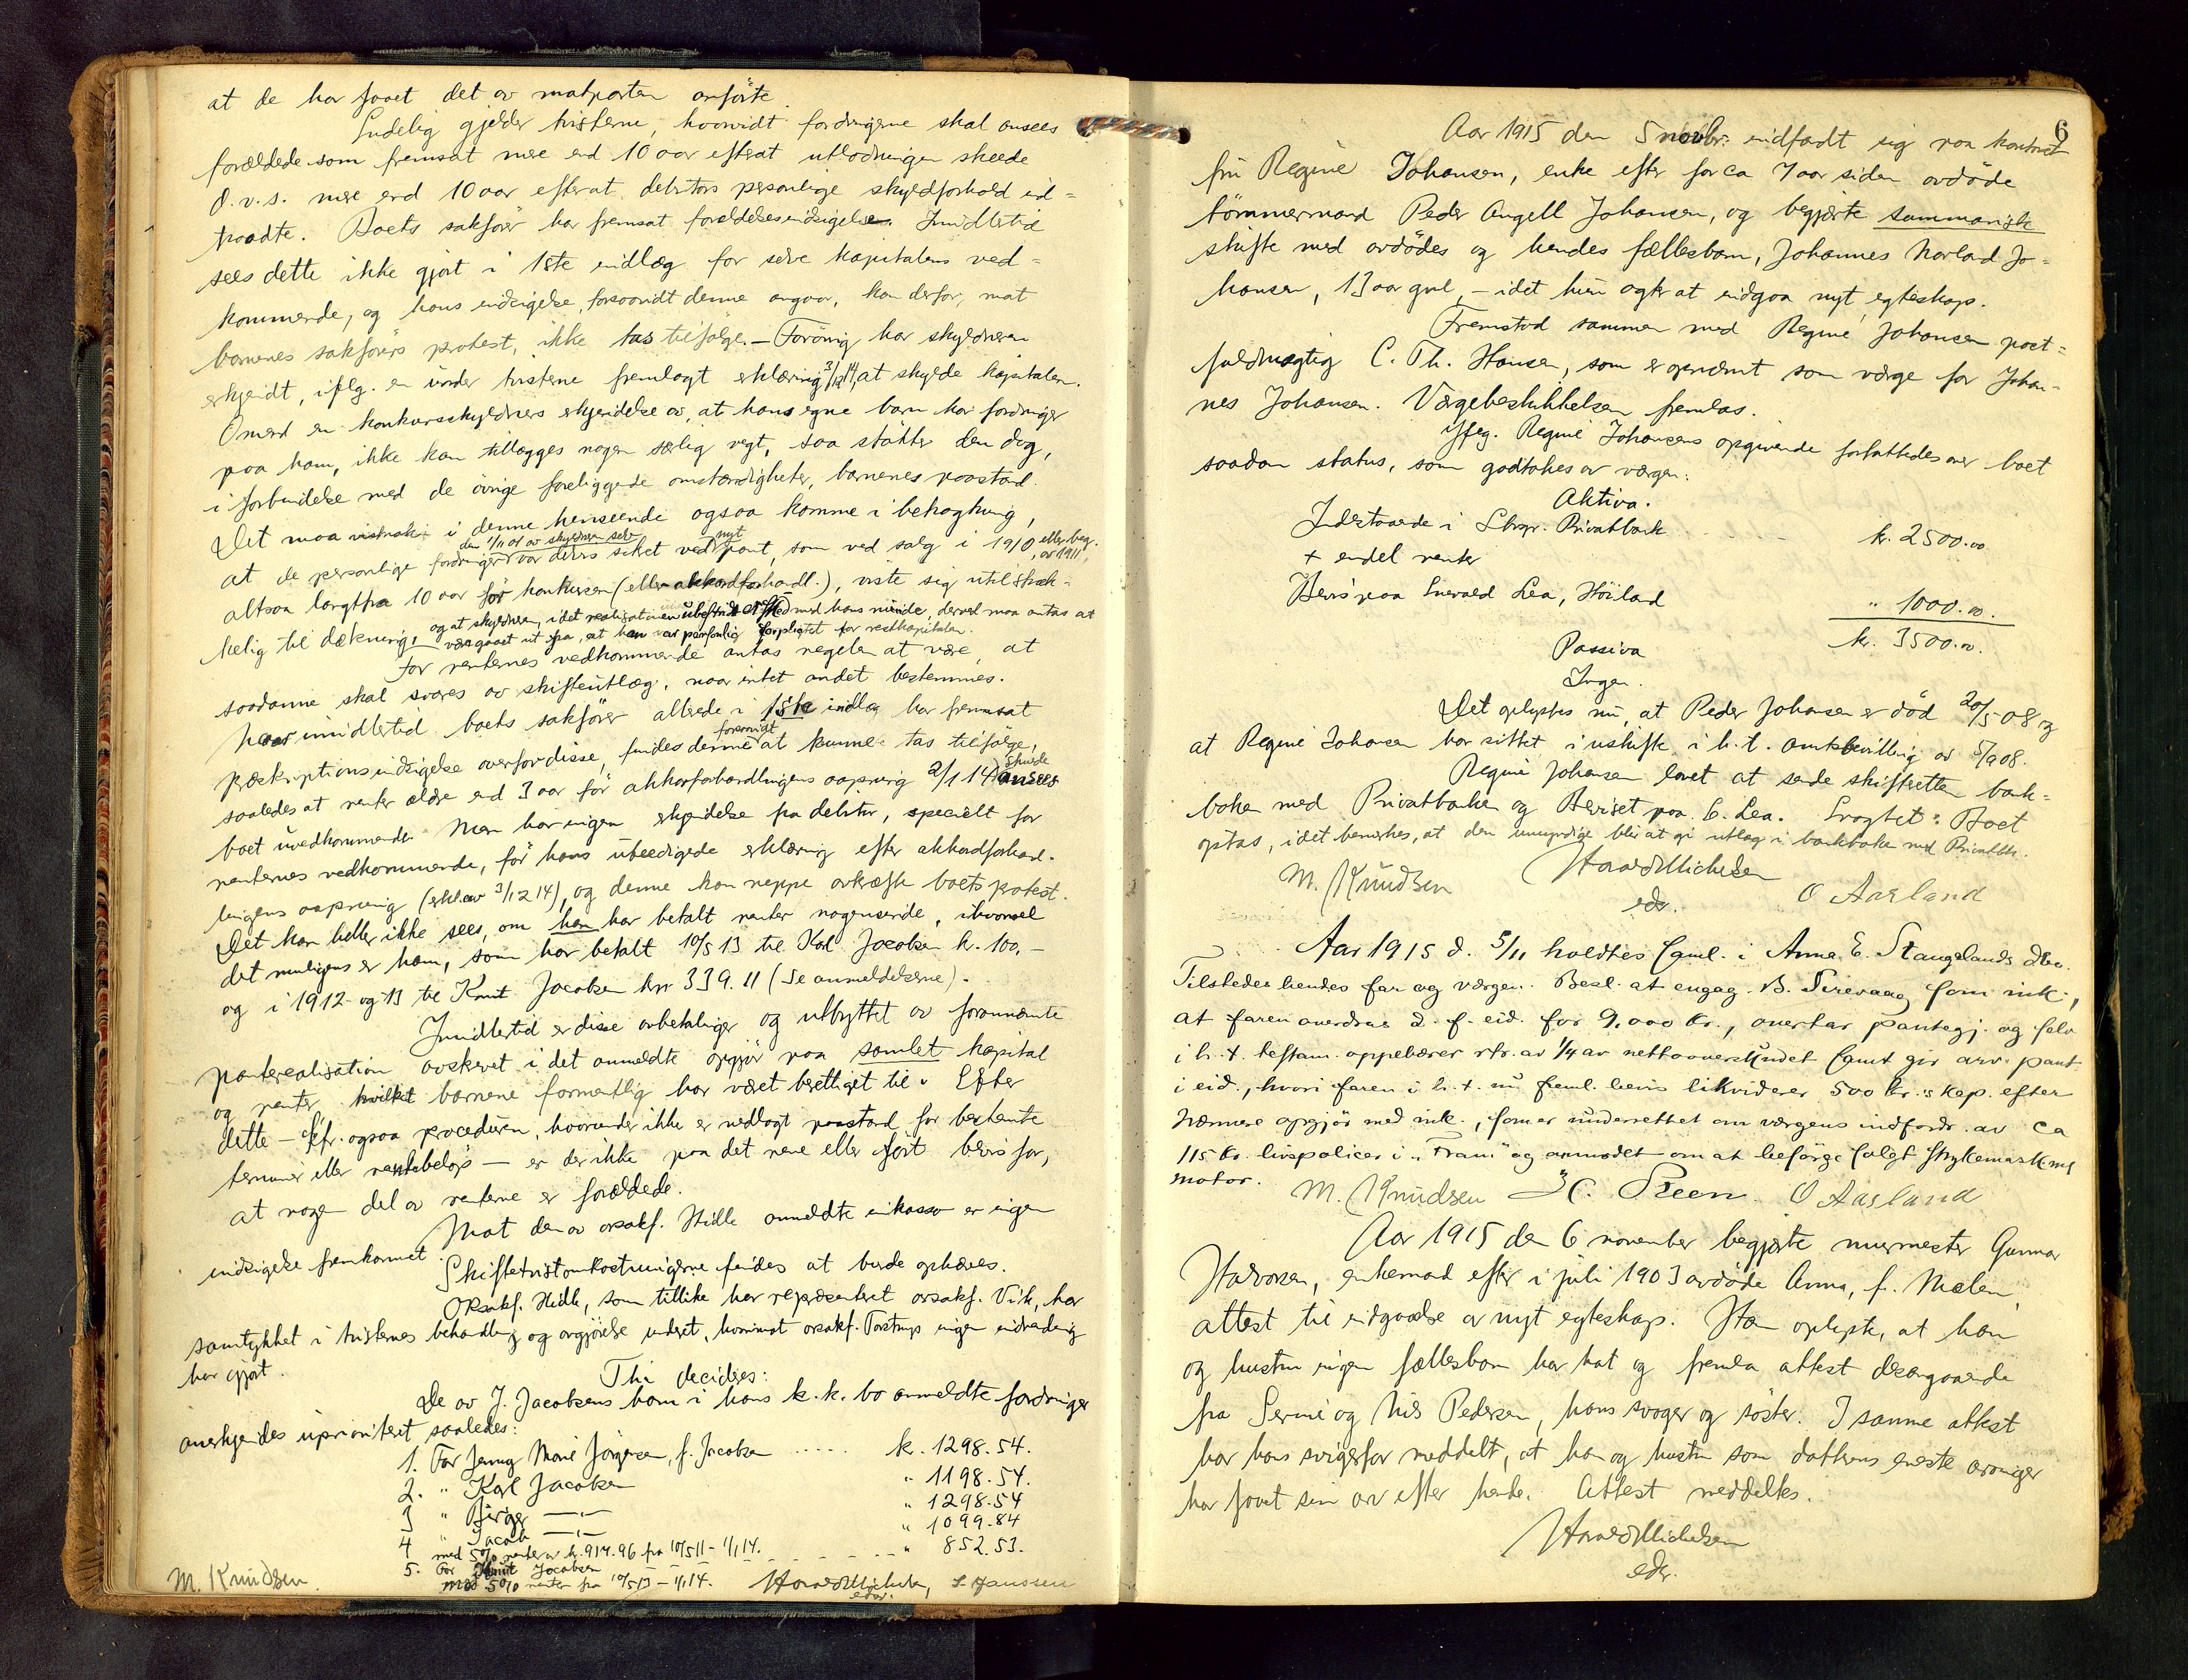 at de har faaet det av motparten anførte.
Endelig gjelder tvisterne, hvorvidt fordringerne skal ansees
forældede som fremsat mere end 10 aar efterat utlodningen skeede
d.v.s. mere end 10 aar efterat debitors personlige skyldforhold ind=
traadte. Boets sakfører har fremsat forældelsesindsigelse. Imidlertid
sees dette ikke gjort i 1ste indlæg for selve kapitalens ved=
kommende, og hans indsigelse, forsaavidt denne angaar, kan derfor, mot
barnenes sakførers protest, ikke tas tilfølge. — Forøvrig har skyldneren
erkjendt, iflg. en under tvisterne fremlagt erklæring 3/12 14, at skylde kapitalen.
Omend en konkursskyldners erkjendelse av, at hans egne barn har fordringer
paa ham, ikke kan tillægges nogen særlig vegt, saa støtter den dog,
i forbindelse med de øvrige foreliggende omstændigheter, barnenes paastand
Det maa vistnok i denne henseende ogsaa komme i betragtning,
den 1/11 01 av skyldneren selv nyt
at de personlige fordringer var deres sikret ved pant, som ved salg i 1910 eller beg. av 1911,
altsaa langt fra 10 aar før konkursen (eller akkordforhandl.), viste sig utilstræk=
og at skyldneren, idet realisationen ubestridt er skeed med hans minde, derved maa antas at
kelig til dækning, være gaaet ut fra, at han var personlig forpligtet for restkapitalen.
For renternes vedkommende antas regelen at være, at
saadanne skal svares av skifteutlæg, naar intet andet bestemmes.
Naar imidlertid boets sakfører allerede i 1ste indlæg har fremsat
præskriptionsindsigelse overfor disse, findes denne forsaavidt at kunne tas tilfølge,
saaledes at renter ældre end 3 aar før akkordforhandlingens aapning 2/1 14 burde ansees
boet uvedkommende. Man har ingen erkjendelse fra debitor, specielt for
renternes vedkommende, før hans ubeedigede erklæring efter akkordforhand-
lingens aapning (erkl. av 3/12 14), og denne kan neppe avkræfte boets protest.
Det kan heller ikke sees, om han har betalt renter nogensinde, ihvorvel
det muligens er ham, som har betalt 10/5 13 til Karl Jacobsen kr. 100,—
og i 1912 og 13 til Knut Jacobsen kr. 339.11 (Se anmeldelserne).
Imidlertid er disse avbetalinger og utbyttet av forannævnte
panterealisation avskrevet i det anmeldte opgjør paa samlet kapital
og renter, hvilket barnene formentlig har været berettiget til. Efter
dette — cfr. ogsaa proceduren, hvorunder ikke er nedlagt paastand for bestemte
terminer eller rentebeløp — er der ikke paa det rene eller ført bevis for,
at nogen del av renterne er forældede.
Mot den av orsakf. Hidle anmeldte inkasso er ingen
indsigelse fremkommet.
Skifte tvistomkostningerne findes at burde ophæves.
Orsakf. Hidle, som tillike har repræsenteret orsakf. Vik, har
samtykket i tvisternes behandling og avgjørelse underet, hvorimot orsakf. Torstrup ingen indvending
har gjort.
Thi decideres:
De av J. Jacobsens barn i hans k.k. bo anmeldte fordringer
anerkjendes uprioritert saaledes:
1. For Jenny Marie Jørgensen, f. Jacobsen ..... kr. 1298.54.
2. " Karl Jacobsen " 1198.54.
3 " Birger —"— " 1298.54
4 " Jacob —"— " 1099.84
med 5% renter av kr. 914.96 fra 10/5 11 – 1/1 14.
5. For Knut Jacobsen " 852.53.
med 5% renter fra 10/5 13 – 1/1 14.
M. Knudsen. Harald Michelsen, edsv. L Janssen

6
Aar 1915 den 5 novbr. indfandt sig paa kontoret
fru Regine Johansen, enke efter for ca 7 aar siden avdøde
tømmermand Peder Angell Johansen, og begjærte summarisk
skifte med avdødes og hendes fællesbarn, Johannes Norland Jo=
hansen, 13 aar gml, — idet hun agter at indgaa nyt egteskap.
Fremstod sammen med Regine Johansen post=
fuldmægtig C. Th. Hansen, som er opnævnt som værge for Johan=
nes Johansen. Værgebeskikkelsen fremlas.
Iflg. Regine Johansens opgivende forfattedes over boet
saadan status, som godtokes av værgen:
Aktiva.
Indestaaende i Sthvgr. Privatbank kr. 2500.00
+ endel renter
Bevis paa Enevald Lea, Høiland " 1000.00.
kr. 3500.00.
Passiva
Ingen.
Det oplystes nu, at Peder Johansen er død 20/5 08 og
at Regine Johansen har sittet i uskifte i h. t. amtsbevilling av 5/9 08.
Regine Johansen lovet at sende skifteretten bank=
boken med Privatbanken og Beviset paa E. Lea. Eragtet: Boet
optas, idet bemerkes, at den umyndige blir at gi utlæg i bankboken med Privatbk.
M. Knudsen Harald Michelsen O Aasland
edv.
Aar 1915 d. 5/11 holdtes saml. i Anna E. Stangelands dbo.
Tilstede hendes far og værgen. Besl. at engag. B. Sirevaag som ink.,
at faren overdras d. f. eid. for 9.000 kr., overtar pantegj. og selv
i h. t. testam. oppebærer rtr. av 1/4 av nettooverskudet samt gir arv. pant
i eid., hvori faren i h. t. nu freml. bevis likviderer 500 kr.s kap. efter
nærmere opgjør med ink., som er underrettet om værgens indfordr. av ca
115 kr. livspolicer i "Fram" og anmodet om at besørge solgt strykemask. m/
motor. M. Knudsen H. Steen O Aasland
Aar 1915 den 6 november begjærte murmester Gunnar
Halvorsen, enkemand efter i juli 1903 avdøde Anna, f. Malen,
attest til indgaaelse av nyt egteskap. Han oplyste, at han
og hustru ingen fællesbarn har hat og fremla attest desangaaende
fra Serine og Nils Pedersen, hans svoger og søster. I samme attest
har hans svigerfar meddelt, at han og hustru som datterens eneste arvinger
har faaet sin arv efter hende. Attest meddeltes.
Harald Michelsen
edv.